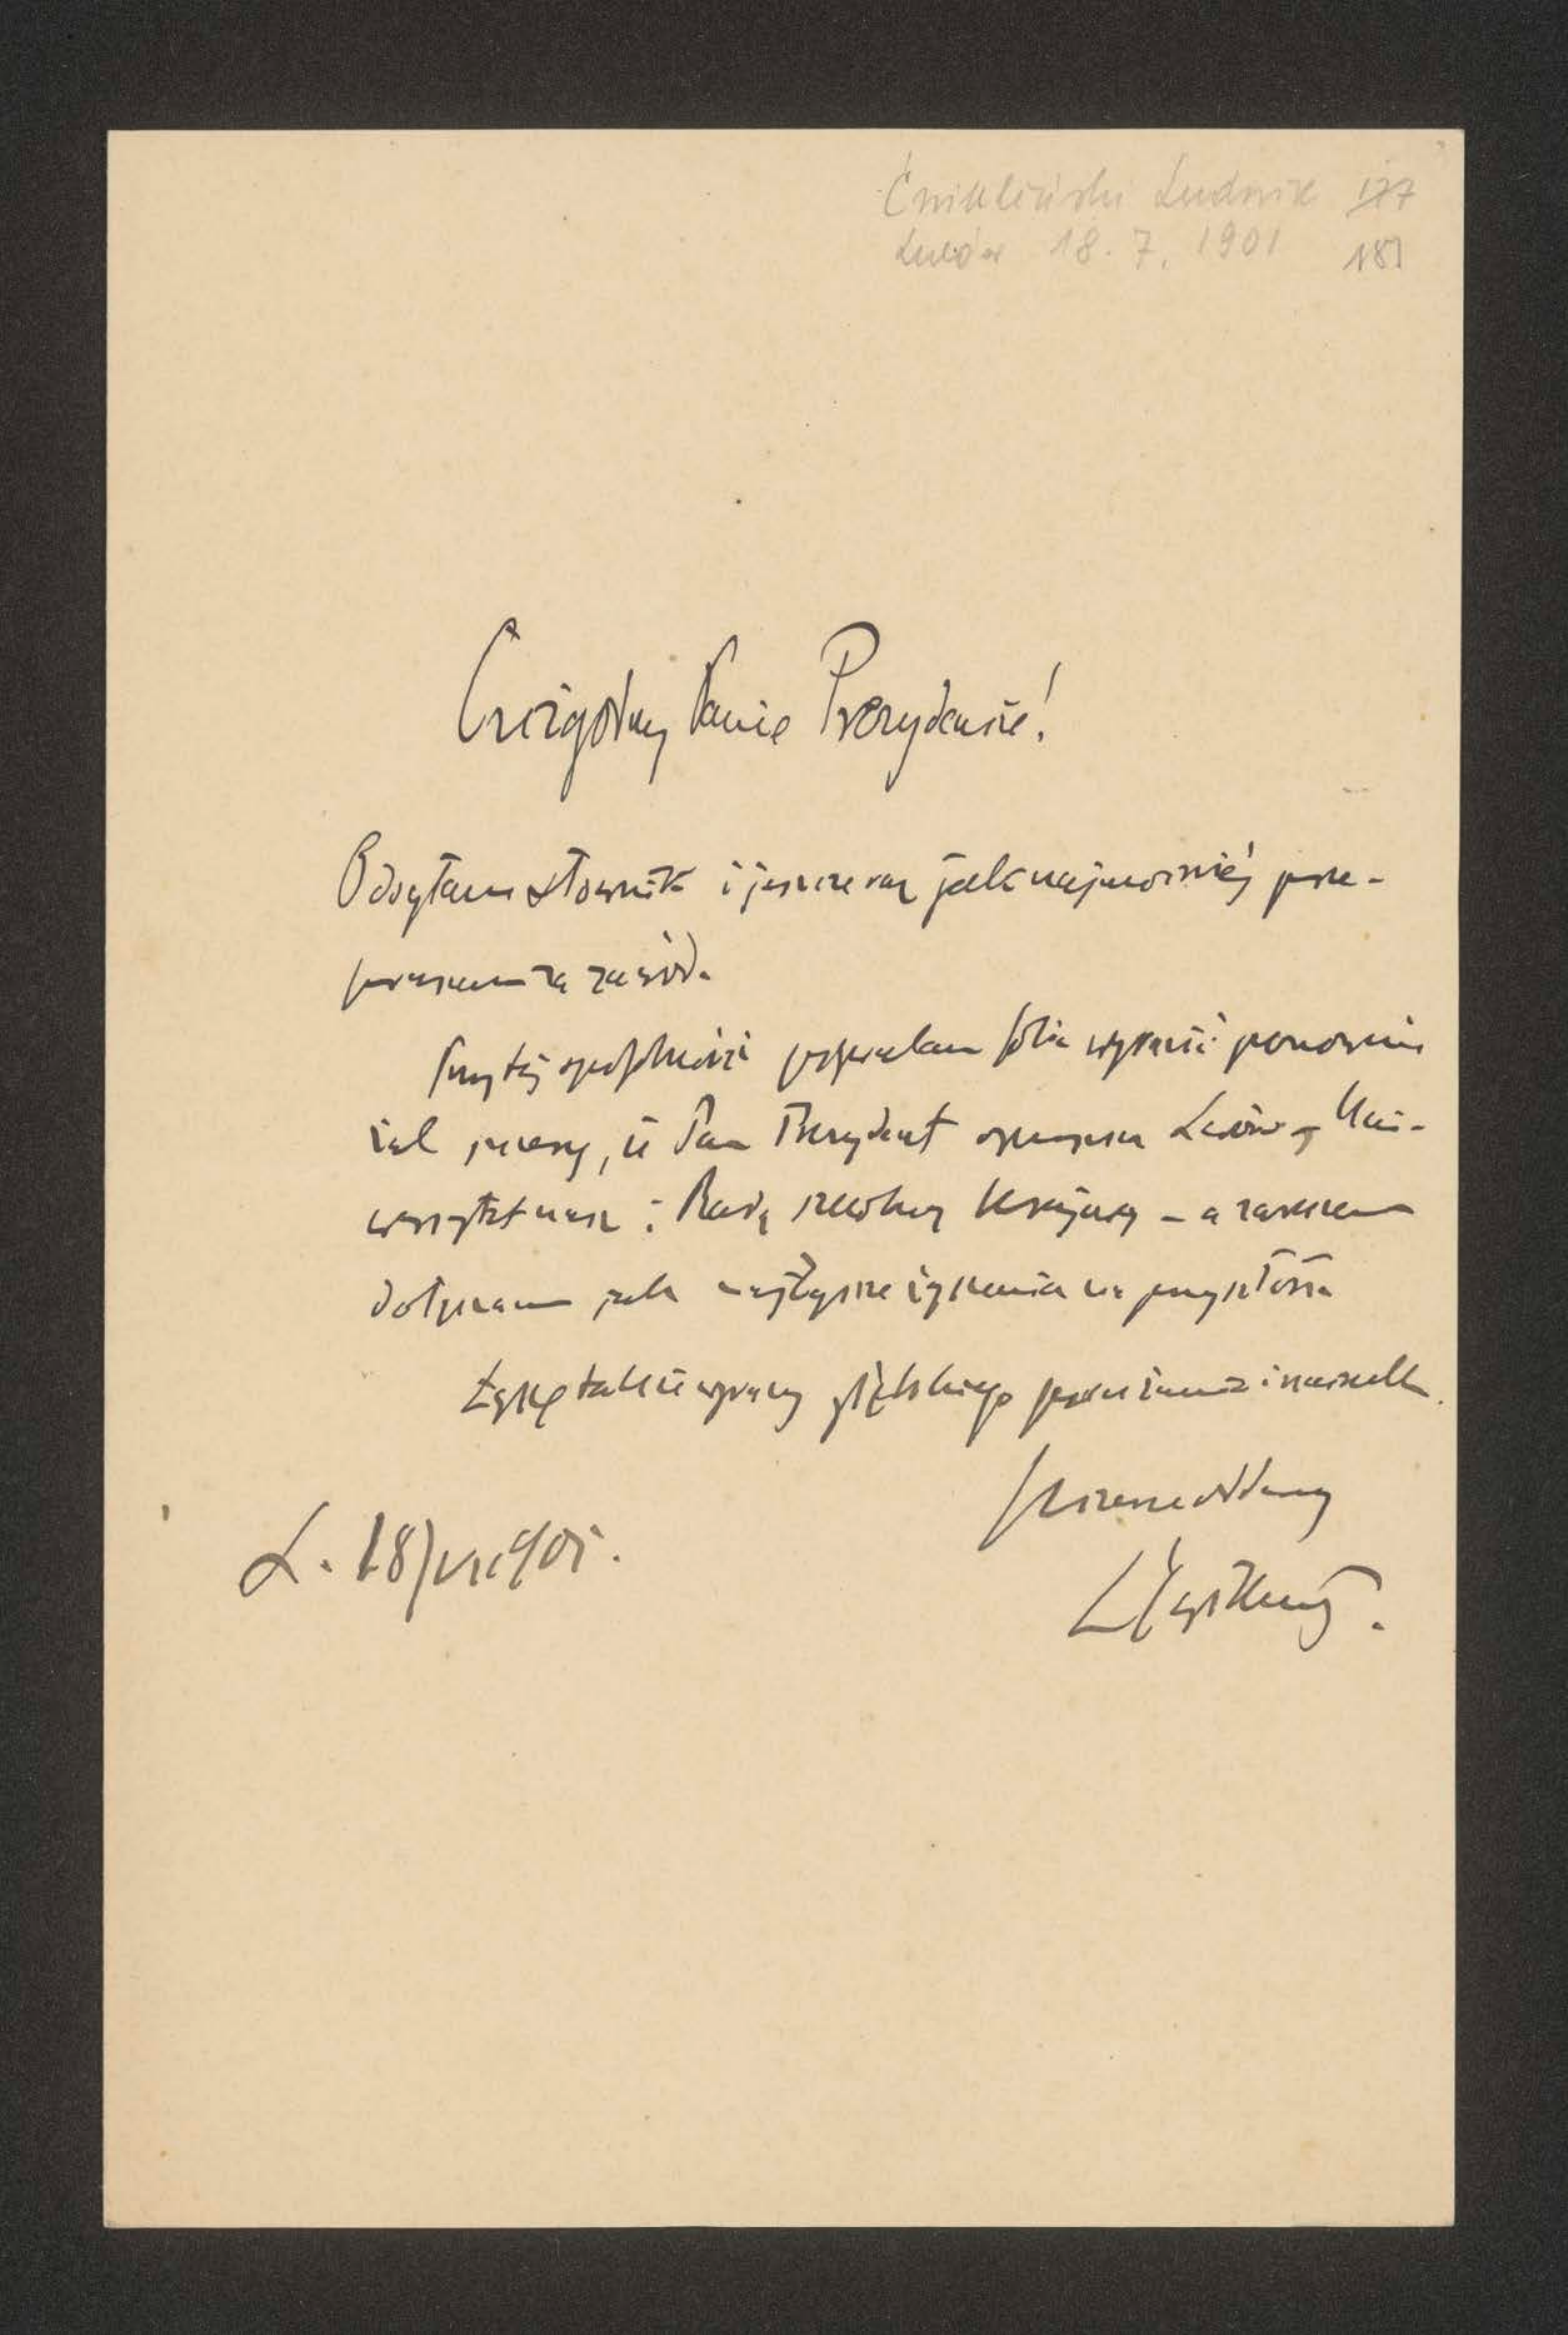 Ćwikliński Ludwik 177
Lwów 18. 7. 1901 181
Czcigodny Panie Prezydencie!
Odsyłam słownik i jeszcze raz jak najmocniéj prze-
praszam za zawód.
Przy téj sposobności pozwalam sobie wyrazić ponownie
żal szczery, iż Pan Prezydent opuszcza Lwów, Uni-
wersytet nasz i Radę szkolną krajową – a zarazem
dołączam jak najlepsze życzenia na przyszłość.
Łączę także wyrazy głębokiego poważania i
szczerze oddany
L. 18/VII 901.
LĆwikliński.